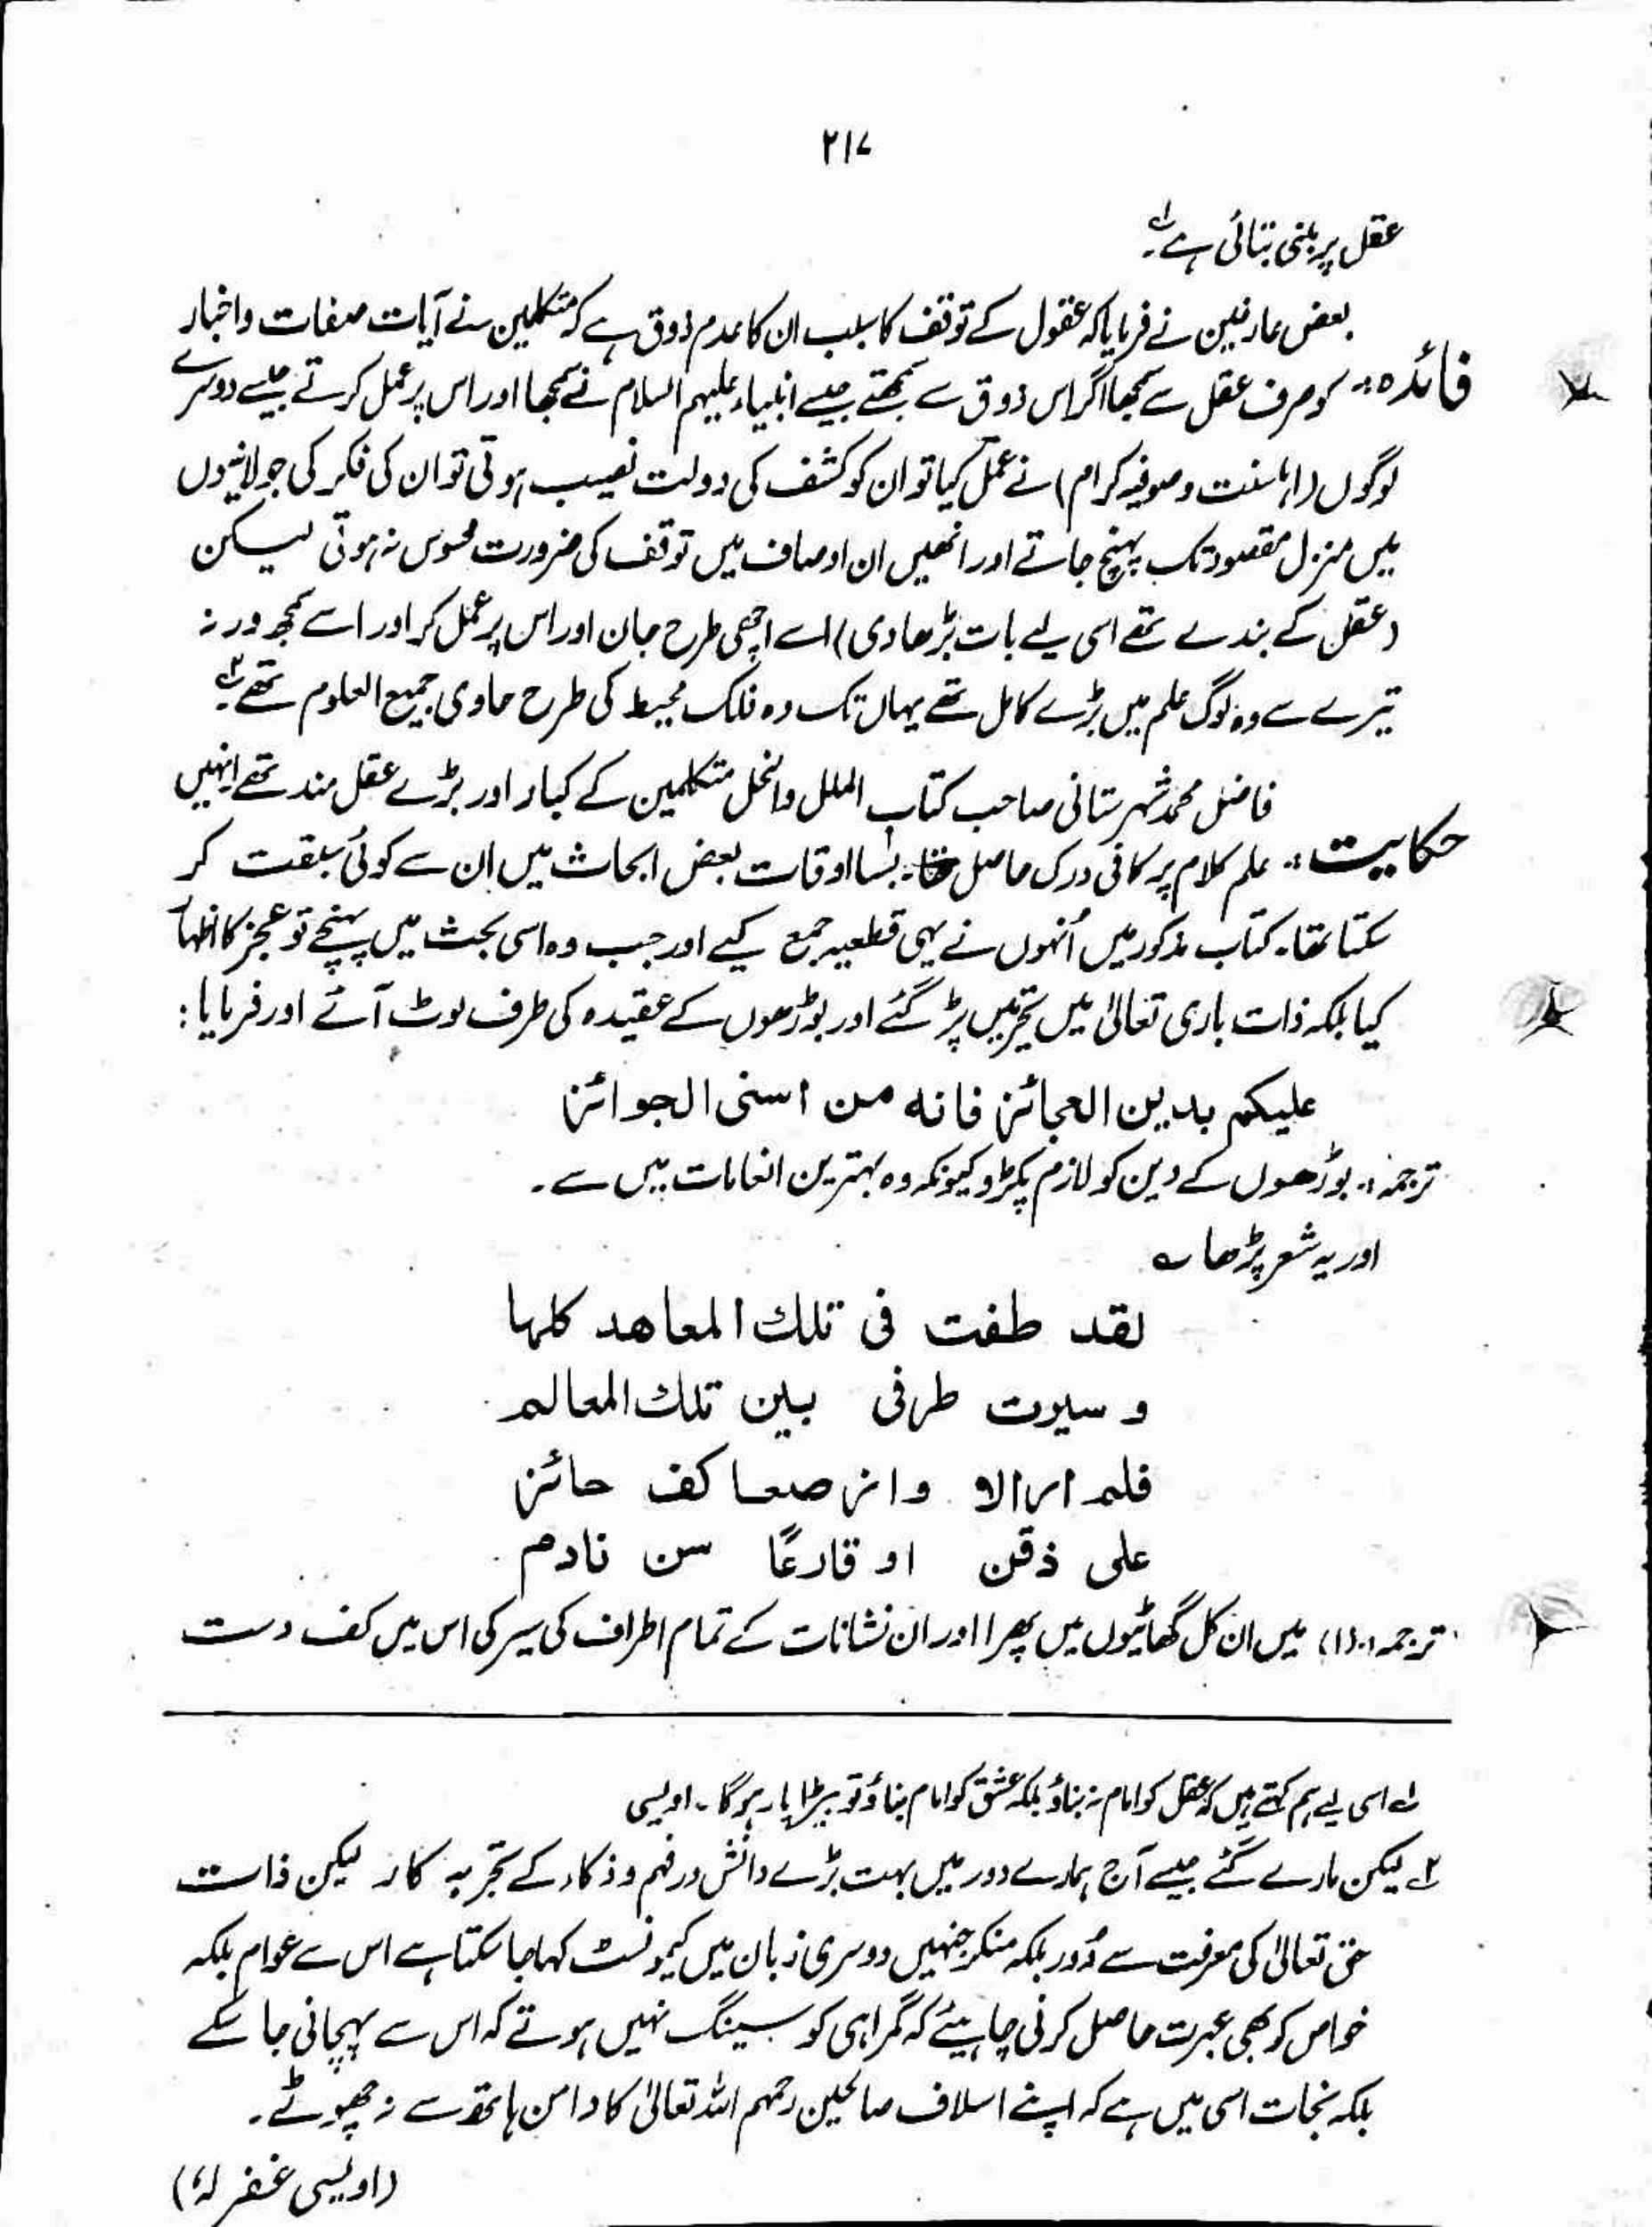 ۲۱۷
عقل پر مبنی بتائی ہے۔ ۱؎
بعض عارفین نے فرمایا کہ عقول کے توقف کا سبب ان کا عدم ذوق ہے کہ متکلمین نے آیات صفات و اخبار
فائدہ:۔ کو صرف عقل سے سمجھا اگر اس ذوق سے سمجھتے جیسے انبیاء علیہم السلام نے سمجھا اور اس پر عمل کرتے جیسے دوسرے
لوگوں (اہلسنت و صوفیہ کرام) نے عمل کیا تو ان کو کشف کی دولت نصیب ہوتی تو ان کی فکر کی جولانیوں
میں منزل مقصود تک پہنچ جاتے اور انھیں ان اوصاف میں توقف کی ضرورت محسوس نہ ہوتی لیکن
(عقل کے بندے تھے اسی لیے بات بڑھا دی) اسے اچھی طرح جان اور اس پر عمل کر اور اسے سمجھ ورنہ
تیرے سے وہ لوگ علم میں بڑے کامل تھے یہاں تک وہ فلک محیط کی طرح حاوی جمیع العلوم تھے۔ ۲؎
فاضل محمد شہرستانی صاحب کتاب الملل والنحل متکلمین کے کبار اور بڑے عقل مند تھے انہیں
حکایت:۔ علم کلام پر کافی درک حاصل تھا۔ بسا اوقات بعض ابحاث میں ان سے کوئی سبقت کر
سکتا تھا۔ کتاب مذکور میں اُنہوں نے یہی قطعیہ جمع کیے اور جب وہ اسی بحث میں پہنچے تو عجز کا اظہار
کیا بلکہ ذات باری تعالیٰ میں تحیر میں پڑ گئے اور بوڑھوں کے عقیدہ کی طرف لوٹ آئے اور فرمایا:
علیکم بدین العجائز فانہ من اسنی الجوائز
ترجمہ:۔ بوڑھوں کے دین کو لازم پکڑو کیونکہ وہ بہترین انعامات میں سے۔
اور یہ شعر پڑھا ؎
لقد طفت فی تلك المعاهد کلها
و سیرت طرفی بین تلك المعالم
فلم ار الا واضعا کف حائر
علی ذقن او قارعًا سن نادم
ترجمہ:۔ (۱) میں ان کل گھاٹیوں میں پھرا اور ان نشانات کے تمام اطراف کی سیر کی اس میں کف دست
۱؎ اسی لیے ہم کہتے ہیں کہ عقل کو امام نہ بناؤ بلکہ عشق کو امام بناؤ تو بیڑا پار ہوگا۔ اویسی
۲؎ لیکن مارے گئے جیسے آج ہمارے دور میں بہت بڑے دانش ور فہم و ذکاء کے تجربہ کار لیکن ذات
حق تعالیٰ کی معرفت سے دُور بلکہ منکر جنہیں دوسری زبان میں کیمونسٹ کہا جا سکتا ہے اس سے عوام بلکہ
خواص کو بھی عبرت حاصل کرنی چاہیئے کہ گمراہی کو سینگ نہیں ہوتے کہ اس سے پہچانی جا سکے
بلکہ نجات اسی میں ہے کہ اپنے اسلاف صالحین رحمہم اللہ تعالیٰ کا دامن ہاتھ سے نہ چھوٹے۔
(اویسی غفر لہٗ)